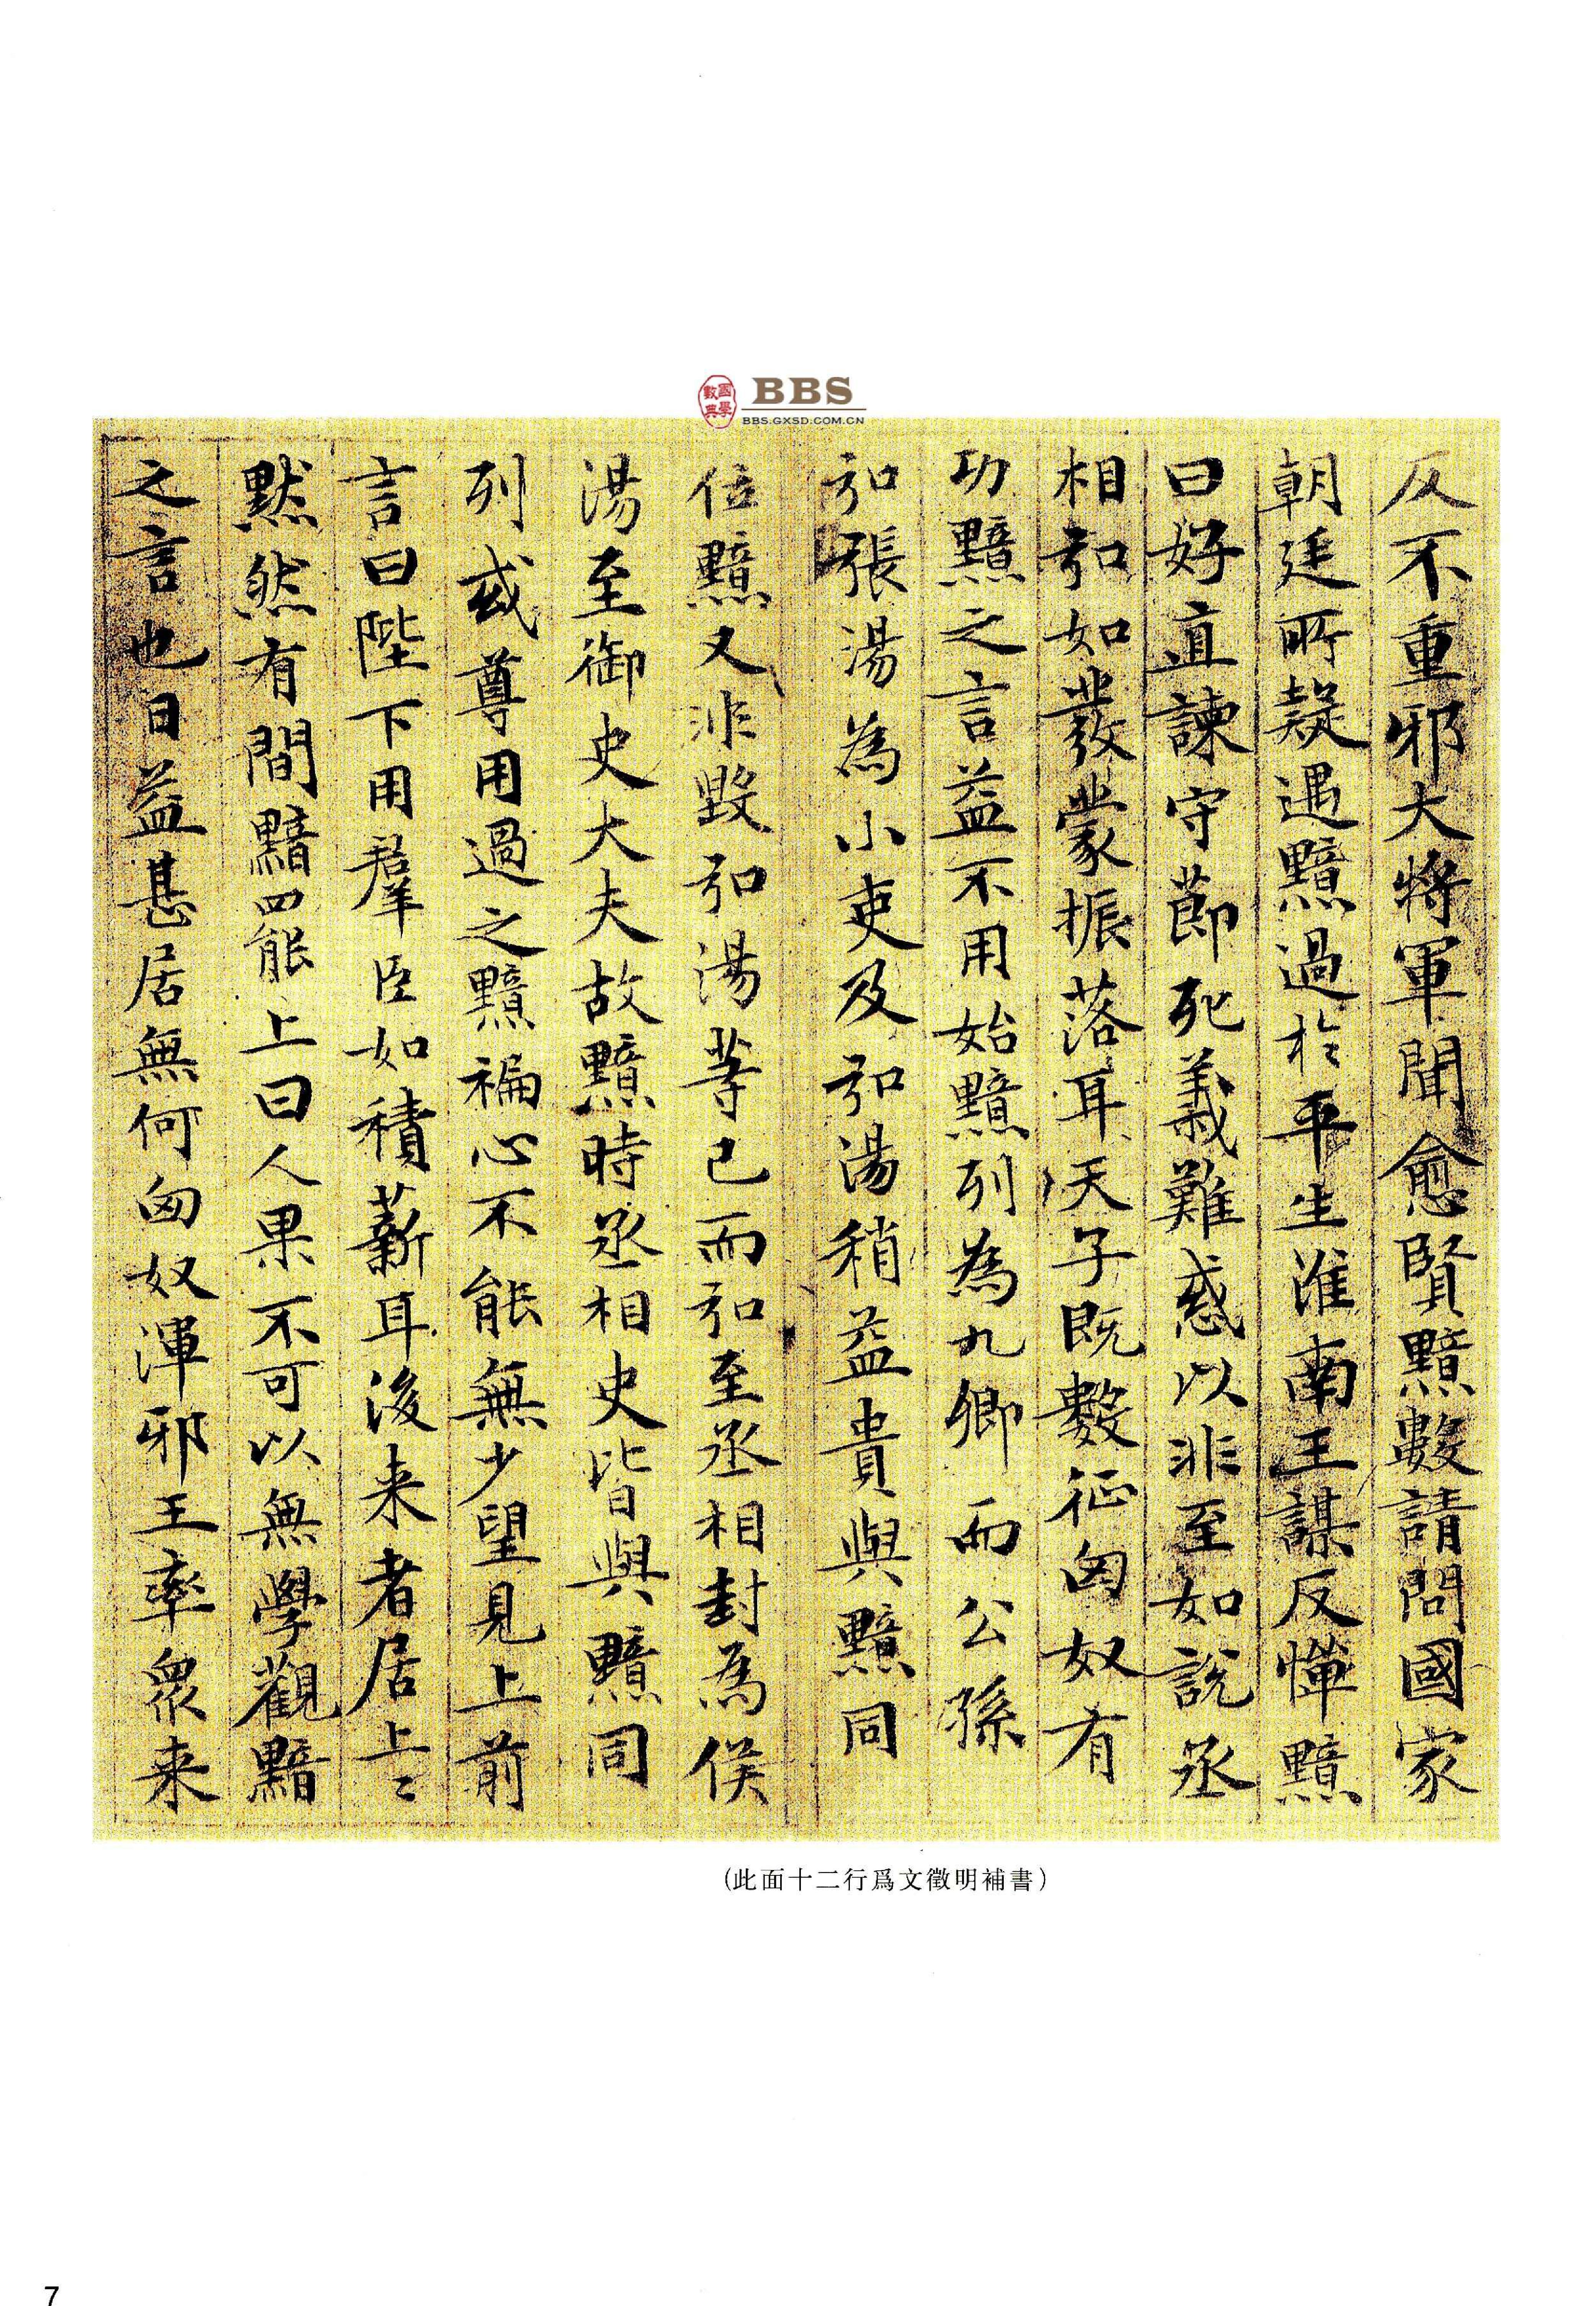 國學數典
BBS
BBS.GXSD.COM.CN
反不重邪大將軍聞愈賢黯數請問國家
朝廷所疑遇黯過於平生淮南王謀反憚黯
曰好直諫守節死義難惑以非至如說丞
相弘如發蒙振落耳天子既數征匈奴有
功黯之言益不用始黯列為九卿而公孫
弘張湯為小吏及弘湯稍益貴與黯同
位黯又非毀弘湯等已而弘至丞相封為侯
湯至御史大夫故黯時丞相史皆與黯同
列或尊用過之黯褊心不能無少望見上前
言曰陛下用羣臣如積薪耳後来者居上〻
黙然有間黯罷上曰人果不可以無學觀黯
之言也日益甚居無何匈奴渾邪王率衆来
(此面十二行爲文徵明補書)
7